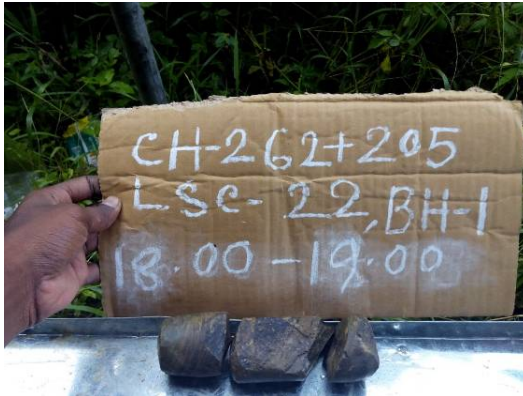 CH-262+205
LSC-22, BH-1
18.00-19.00